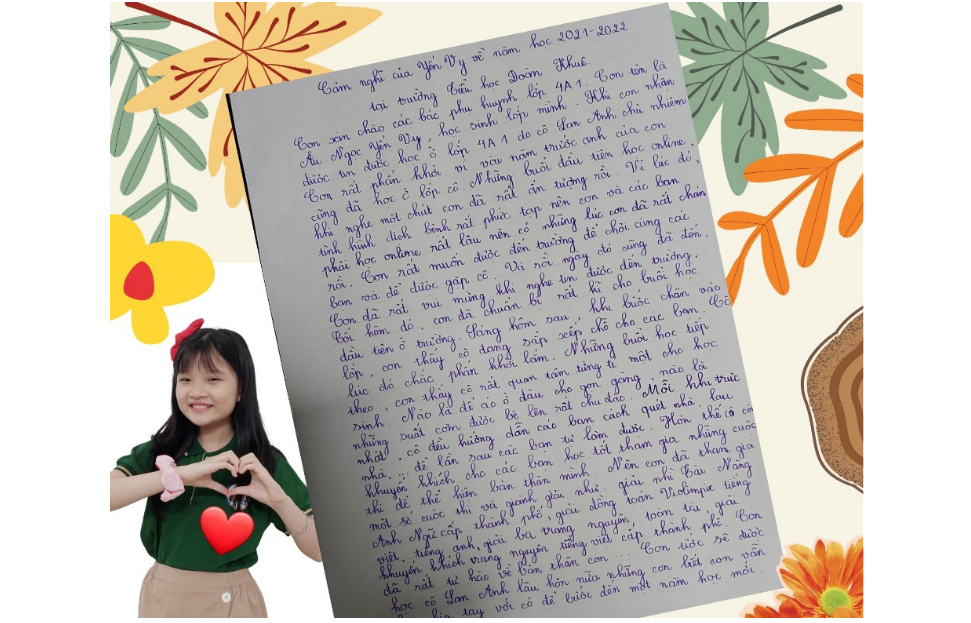 Cảm nghĩ của Yến Vy về năm học 2021-2022
tại trường Tiểu học Đoàn Khuê.
Con xin chào các bác phụ huynh lớp 4A1. Con tên là
Âu Ngọc Yến Vy, học sinh lớp mình. Khi con nhận
được tin được học ở lớp 4A1 do cô Lan Anh chủ nhiệm
Con rất phấn khởi vì vài năm trước anh của con
cũng đã học ở lớp cô. Những buổi đầu tiên học online
khi nghe một chút con đã rất ấn tượng rồi. Vì lúc đó,
tình hình dịch bệnh rất phức tạp nên con và các bạn
phải học online rất lâu nên có những lúc con đã rất chán
rồi. Con rất muốn được đến trường để chơi cùng các
bạn và để được gặp cô. Và rồi ngày đó cũng đã đến.
Con đã rất vui mừng khi nghe tin được đến trường.
Tối hôm đó, con đã chuẩn bị rất kĩ cho buổi học
đầu tiên ở trường. Sáng hôm sau, khi bước chân vào
lớp, con thấy cô đang sắp xếp chỗ cho các bạn. Cô
lúc đó chắc phấn khởi lắm. Những buổi học tiếp
theo, con thấy cô rất quan tâm từng tí một cho học
sinh. Nào là để áo ở đâu cho gọn gàng, nào là
những suất cơm được bê lên rất chu đáo. Mỗi khi trực
nhật, cô đều hướng dẫn các bạn cách quét nhà, lau
nhà, để lần sau các bạn tự làm được. Hơn thế cô còn
khuyến khích cho các bạn học tốt tham gia những cuộc
thi để thể hiện bản thân mình. Nên con đã tham gia
một số cuộc thi và giành giải như: giải nhì Tài Năng
Anh Ngữ cấp thành phố, giải đồng toán Violimpic tiếng
việt, tiếng anh, giải ba trạng nguyên toàn tài, giải
khuyến khích trạng nguyên tiếng việt cấp thành phố. Con
đã rất tự hào về bản thân con... Con ước sẽ được
học cô Lan Anh lâu hơn nữa nhưng con biết con vẫn
chia tay với cô để bước đến một năm học mới.